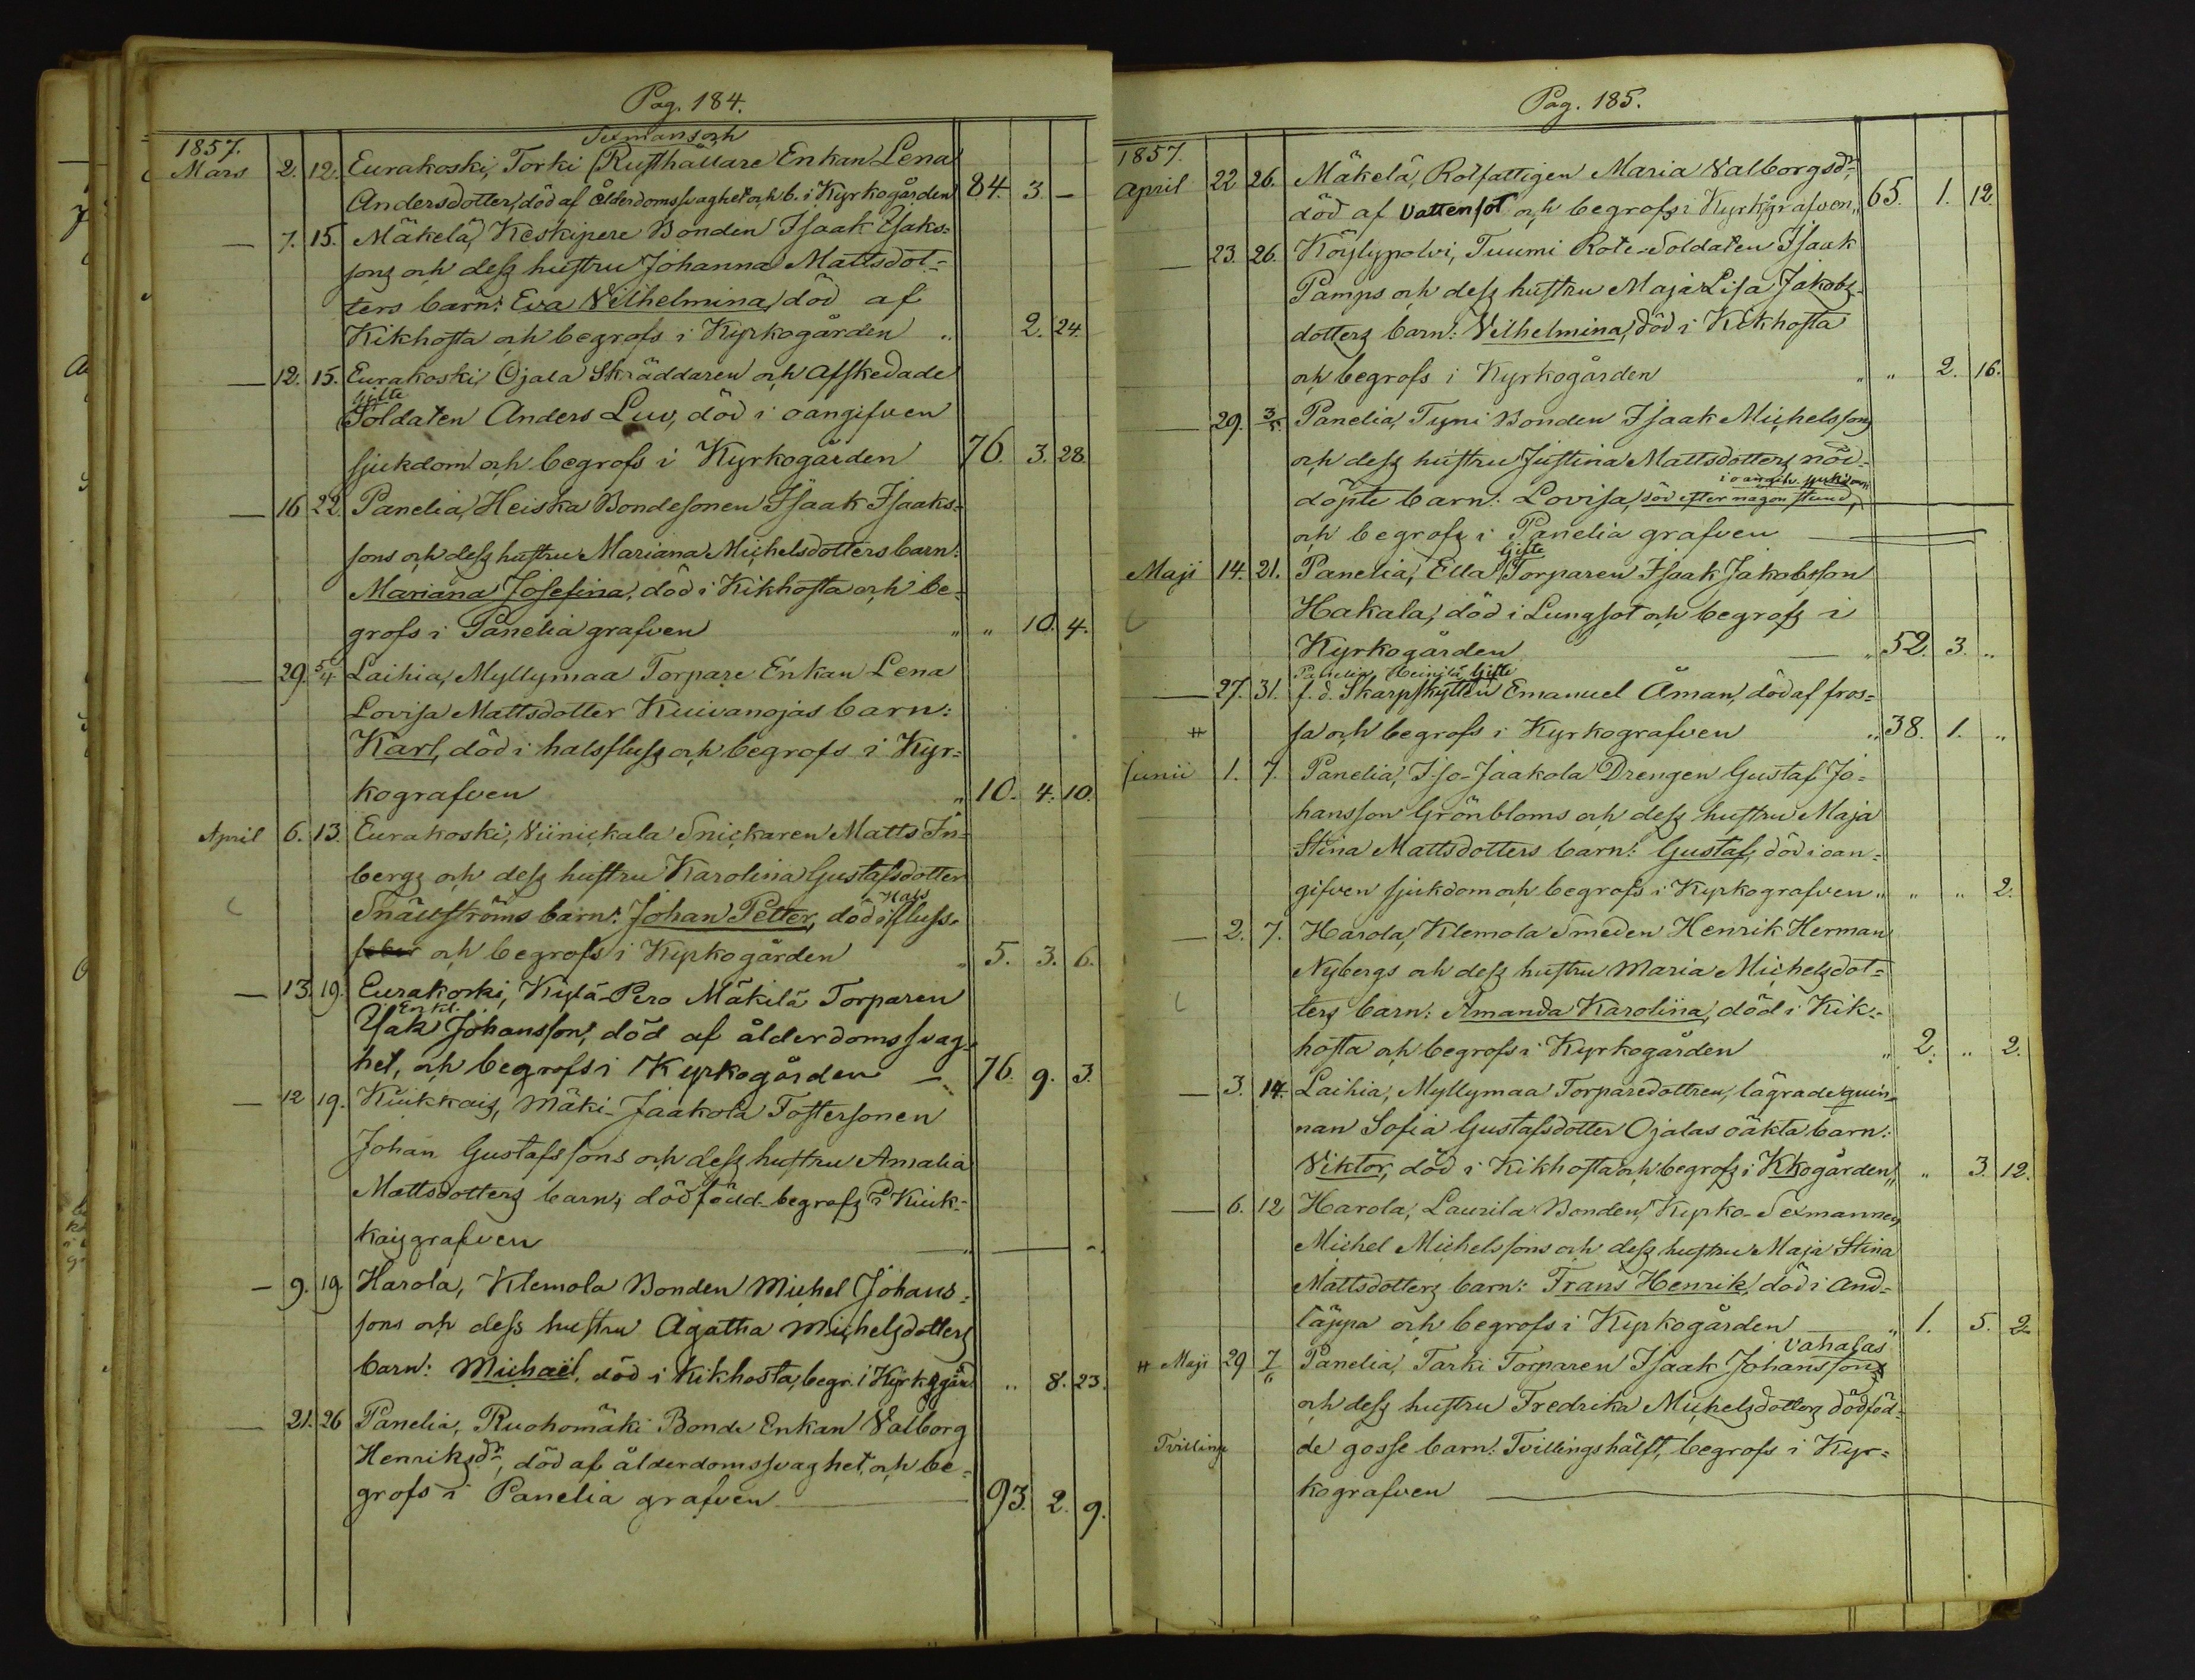 Pag. 184.
1857.
Sexmans och
Mars 2. 12. Eurakoski, Torki Rusthållare Enkan Lena
Andersdotter, död af ålderdomssvaghet och b. i Kyrkogården 84. 3. –
— 7. 15. Mäkelä, Keskipere Bonden Isaak Isaks-
sons och dess hustru Johanna Mattsdot-
ters barn: Eva Vilhelmina, död af
Kikhosta och begrofs i Kyrkogården „ 2. 24.
— 12. 15. Eurakoski, Ojala Skräddaren och Afskedade
Gifte
Soldaten Anders Luv, död i oangifven
sjukdom och begrofs i Kyrkogården 76. 3. 28.
— 16 22. Panelia, Heiska Bondesonen Isaak Isaaks-
sons och dess hustru Mariana Michelsdotters barn:
Mariana Josefina, död i Kikhosta och be-
grofs i Panelia grafven „ „ 10. 4.
— 29. 5/4 Laihia, Myllymaa Torpare Enkan Lena
Lovisa Mattsdotter Kuivanojas barn:
Karl, död i halsfluss och begrofs i Kyr-
kografven „ 10. 4. 10.
April 6. 13. Eurakoski, Viinickala Snickaren Matts In-
bergs och dess hustru Karolina Gustafsdotter
Hals
Snällströms barn: Johan Petter, död i fluss-
och begrofs i Kyrkogården „ 5. 3. 6.
— 13. 19. Eurakoski, Kylä-Pero Mäkilä Torparen
Enkl.
Isak Johansson, död af ålderdomssvag-
het, och begrofs i Kyrkogården — 76. 9. 3.
— 12 19. Kiukkais, Mäki-Jaakola Fostersonen
Johan Gustafssons och dess hustru Amalia
Mattsdotters barn, dödfödd begrofs i Kiuk-
kaisgrafven
— 9. 19. Harola, Klemola Bonden Michel Johans-
sons och dess hustru Agatha Michelsdotters
barn: Michaël, död i Kikhosta, begr. i Kyrkogård „ 8. 23.
— 21. 26 Panelia, Ruohomäki Bonde Enkan Valborg
Henriksdr, död af ålderdomssvaghet, och be-
grofs i Panelia grafven 93. 2. 9.
Pag. 185.
1857.
April 22 26. Mäkelä, Rotfattigen Maria Valborgsdr,
död af Vattensot och begrofs i Kyrkografven „ 65. 1. 12.
— 23. 26. Köylypolvi, Tuumi Rote-Soldaten Isaak
Pamps och dess hustru Maja Lisa Jakobs-
dotters barn: Vilhelmina, död i Kikhosta
och begrofs i Kyrkogården „ „ 2. 16.
— 29. 3/5 Panelia, Tyni Bonden Isaak Michelssons
och dess hustru Justina Mattsdotters nöd-
i oangifv. sjukdom
döpte barn: Lovisa, död efter nagon stund,
och begrofs i Panelia grafven
Gifte
Maji 14. 21. Panelia, Ella Torparen Isaak Jakobsson
Hakala, död i Lungsot och begrofs i
Kyrkogården „ 52. 3. „
Panelia Heinilä Gifte
— 27. 31. f. d. Skarpskytten Emanuel Åman, död af fros-
# sa och begrofs i Kyrkografven „ 38. 1. „
Junii 1. 7. Panelia, Iso-Jaakola Drengen Gustaf Jo-
hansson Grönbloms och dess hustru Maja
Stina Mattsdotters barn: Gustaf, död i oan-
gifven sjukdom och begrofs i Kyrkografven „ „ „ 2.
— 2. 7. Harola, Klemola Smeden Henrik Herman
Nybergs och dess hustru Maria Michelsdot-
ters barn: Amanda Karolina, död i Kik-
hosta och begrofs i Kyrkogården „ 2. „ 2.
— 3. 14. Laihia, Myllymaa Torparedottren, lägrade quin-
nan Sofia Gustafsdotter Ojalas oäkta barn:
Viktor, död i Kikhosta och begrofs i Kkogården „ „ 3. 12.
— 6. 12 Harola, Laurila Bonden, Kyrko-Sexmannen
Michel Michelssons och dess hustru Maja Stina
Mattsdotters barn: Frans Henrik, död i And-
täppa och begrofs i Kyrkogården „ 1. 5. 2
Vahalas
# Maji 29 7/6 Panelia, Tarki Torparen Isaak Johanssons
och dess hustru Fredrika Michelsdotters dödföd-
Tvilling de gosse barn: Tvillingshälft, begrofs i Kyr-
kografven